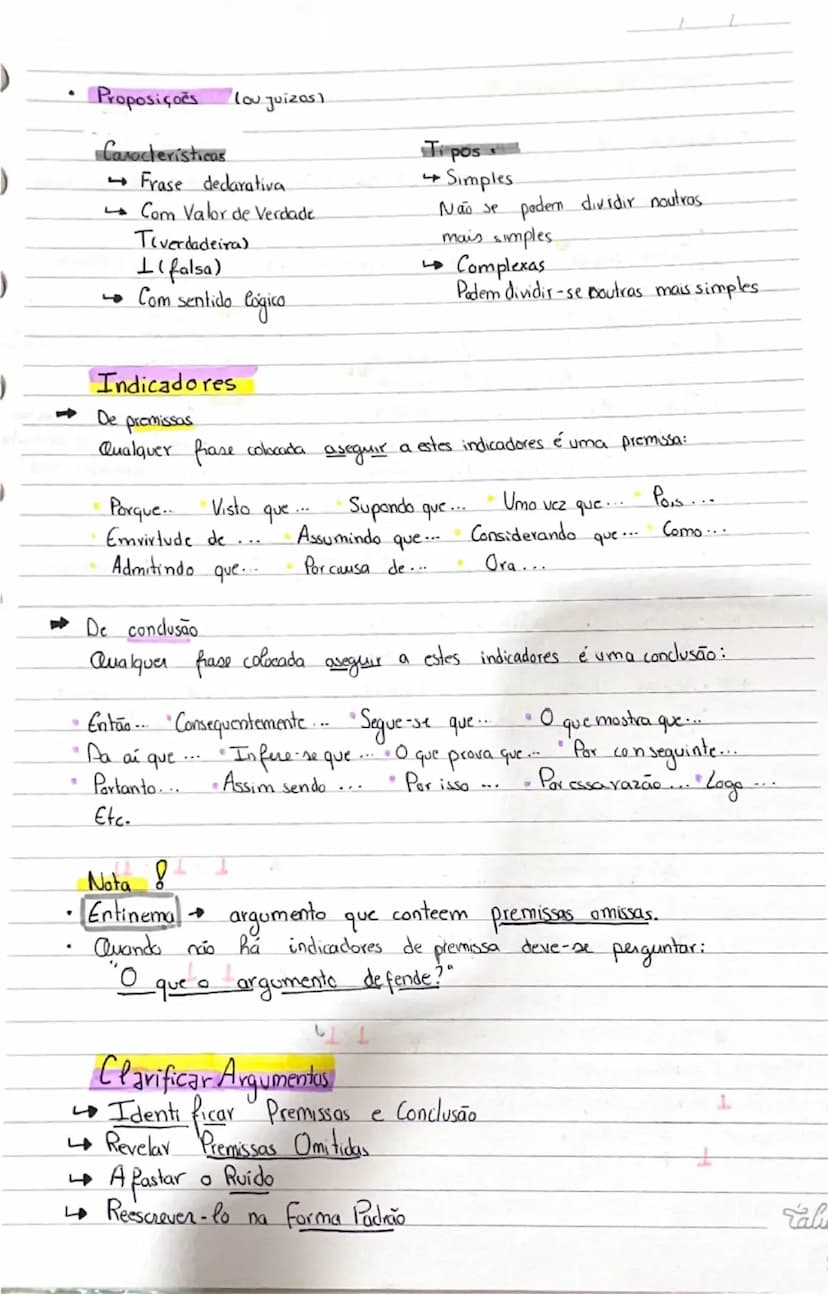 • Proposições (ou juizos)
Características
↳ Frase declarativa
↳ Com Valor de Verdade
T(verdadeira)
⊥(falsa)
↳ Com sentido lógico
Tipos:
↳ Simples
Não se podem dividir noutras
mais simples
↳ Complexas
Podem dividir-se noutras mais simples
Indicadores
➡ De premissas
Qualquer frase colocada aseguir a estes indicadores é uma premissa:
• Porque... • Visto que... • Supondo que... • Uma vez que... • Pois...
• Emvirtude de ... • Assumindo que... • Considerando que... • Como...
• Admitindo que... • Por causa de... • Ora...
➡ De conclusão
Qualquer frase colocada aseguir a estes indicadores é uma conclusão:
• Então... • Consequentemente... • Segue-se que... • O que mostra que...
• Da aí que ... • Infere-se que ... • O que prova que... • Por conseguinte...
• Portanto... • Assim sendo ... • Por isso ... • Por essa razão ... • Logo ...
Etc.
Nota !
• Entinema → argumento que conteem premissas omissas.
• Quando não há indicadores de premissa deve-se perguntar:
"O que o argumento defende?"
Clarificar Argumentos
↳ Identificar Premissas e Conclusão
↳ Revelar Premissas Omitidas
↳ Afastar o Ruído
↳ Reescrever-lo na Forma Padrão